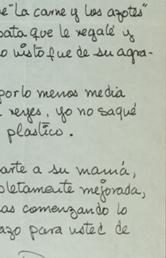 e "La carne y los azotes"
bata que le regalé y
o visto fue de su agra-
por lo menos media
reyes, yo no saqué
plastico.
arte a su mamá,
pletamente mejorada,
as comenzando lo
azo para usted de